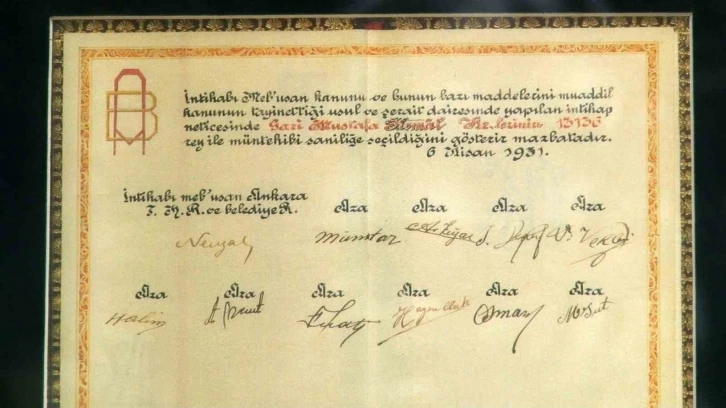 İntihabı Meb'usan kanunu ve bunun bazı maddelerini muaddil
kanunun tayinettiği usul ve şerait dairesinde yapılan intihap
neticesinde Gazi Mustafa Kemâl Hz.lerinin 13136
rey ile müntehibi saniliğe seçildiğini gösterir mazbatadır.
6 Nisan 1931.
İntihabı meb'usan Ankara
T. H. R. ve belediye R. Âza Âza Âza Âza
Mümtaz
Âza Âza Âza Âza Âza Âza
Halim Hayrullah Osman Mesut